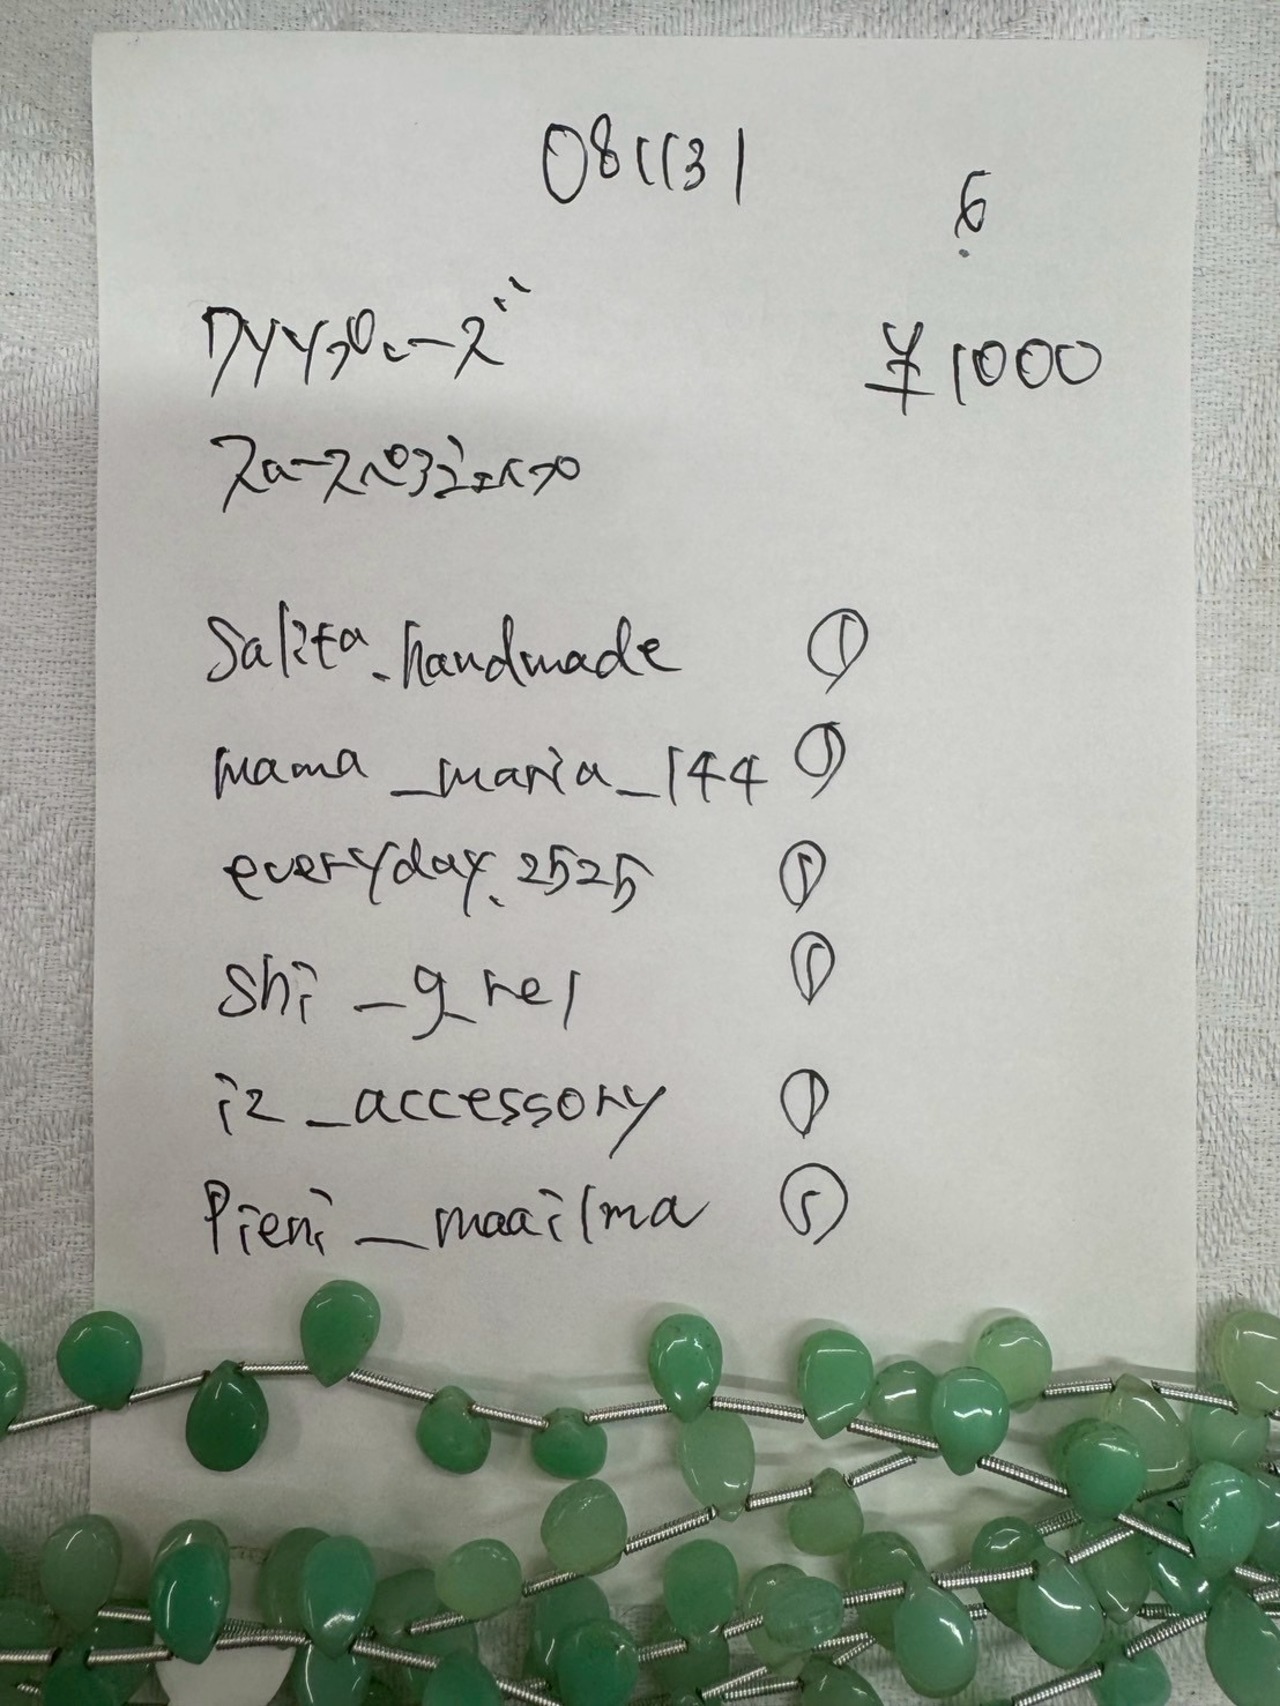 081131
6
クリソプレーズ
¥1000
スムースペアシェイプ
Salita_handmade ①
mama_maria_144 ①
everyday.2525 ①
shi_g_rel ①
iz_accessory ①
Pieni_maailma ⑤